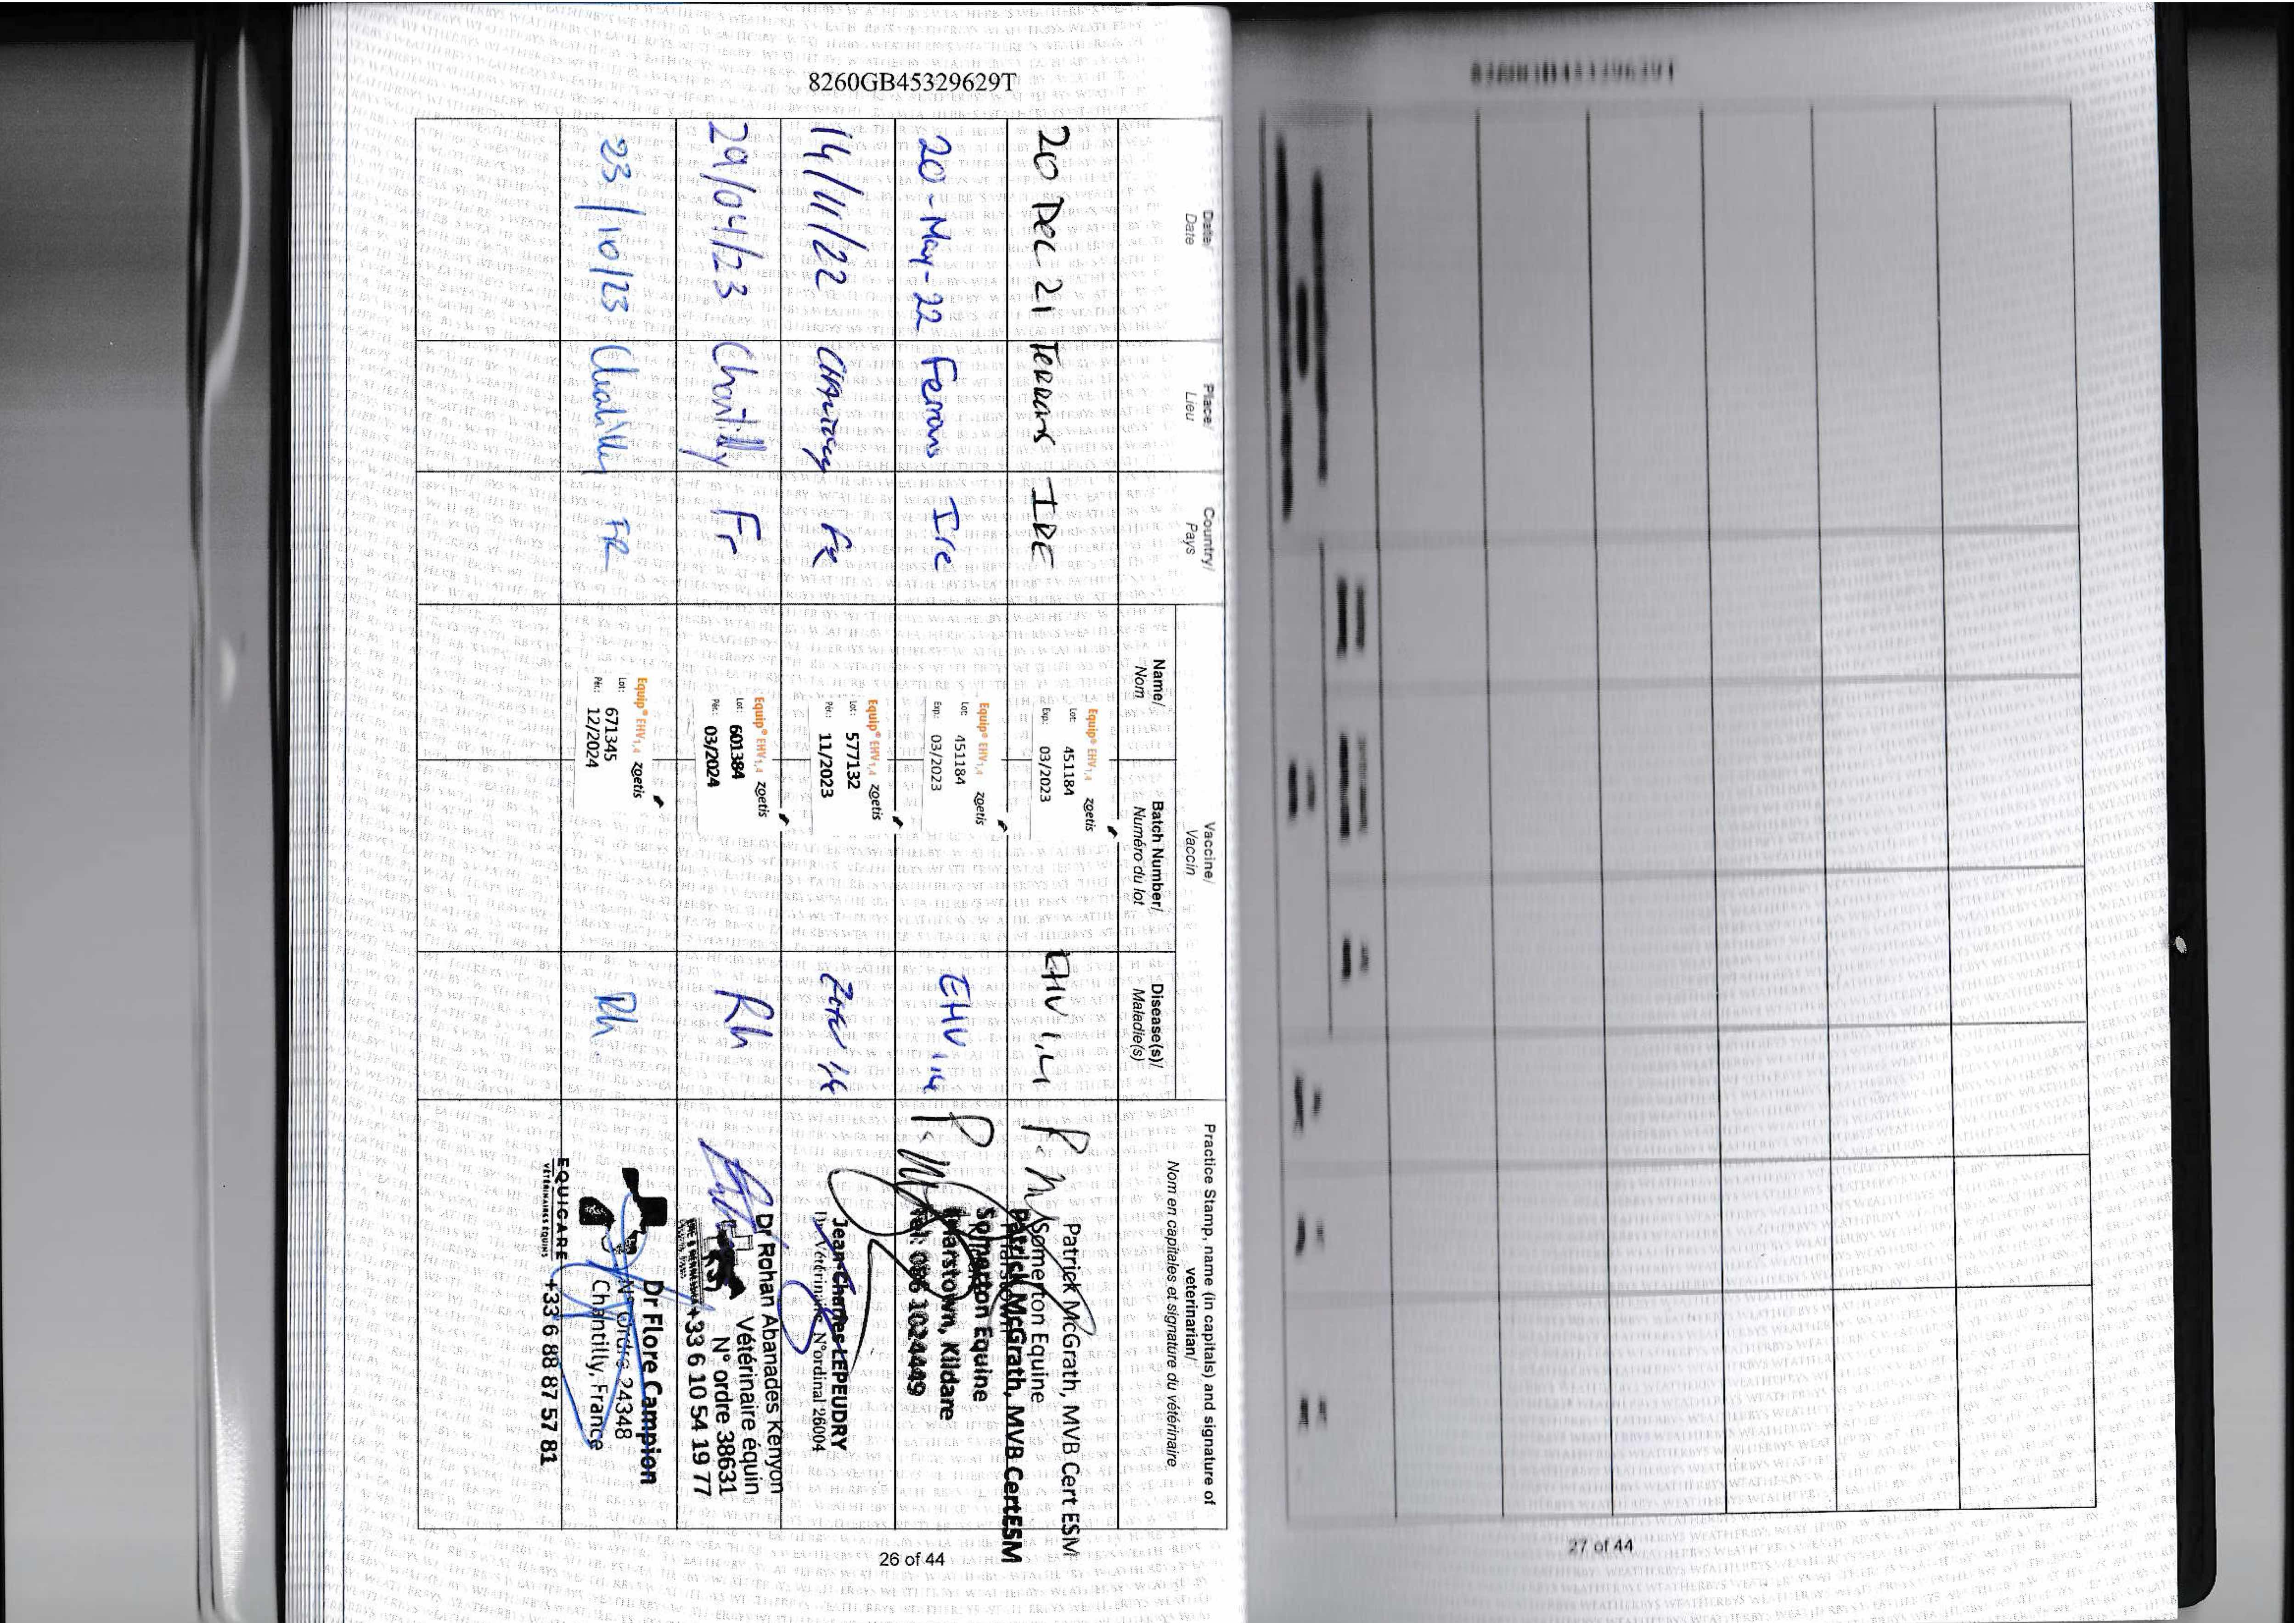 8260GB45329629T
Date/
Date
Place/
Lieu
Country/
Pays
Vaccine/
Vaccin
Name/
Nom
Batch Number/
Numéro du lot
Disease(s)/
Maladie(s)
Practice Stamp, name (in capitals) and signature of
veterinarian/
Nom en capitales et signature du vétérinaire
20 Dec 21 Ferrans IRE
Equip® EHV1,4 zoetis
Lot: 451184
Exp: 03/2023
EHV 1,4
Patrick McGrath, MVB Cert ESM
Somerton Equine
20-May-22 Ferrans Ire
Equip® EHV1,4 zoetis
Lot: 451184
Exp: 03/2023
EHV 1,4
Patrick McGrath, MVB CertESM
Somerton Equine
Kildare
Tel: 086 1024449
14/11/22 Chantilly FR
Equip® EHV1,4 zoetis
Lot: 577132
Pér.: 11/2023
Jean-Charles LEPEUDRY
Dr Vétérinaire N°ordinal 26004
29/04/23 Chantilly Fr
Equip® EHV1,4 zoetis
Lot: 601384
Pér.: 03/2024
Rh
Dr Rohan Abanades Kenyon
Vétérinaire équin
N° ordre 38631
+33 6 10 54 19 77
23/10/23 Chantilly FR
Equip® EHV1,4 zoetis
Lot: 671345
Pér.: 12/2024
Rh
Dr Flore Campion
N° Ordre 24348
Chantilly, France
EQUICARE
VÉTÉRINAIRES EQUINS
+33 6 88 87 57 81
26 of 44
27 of 44